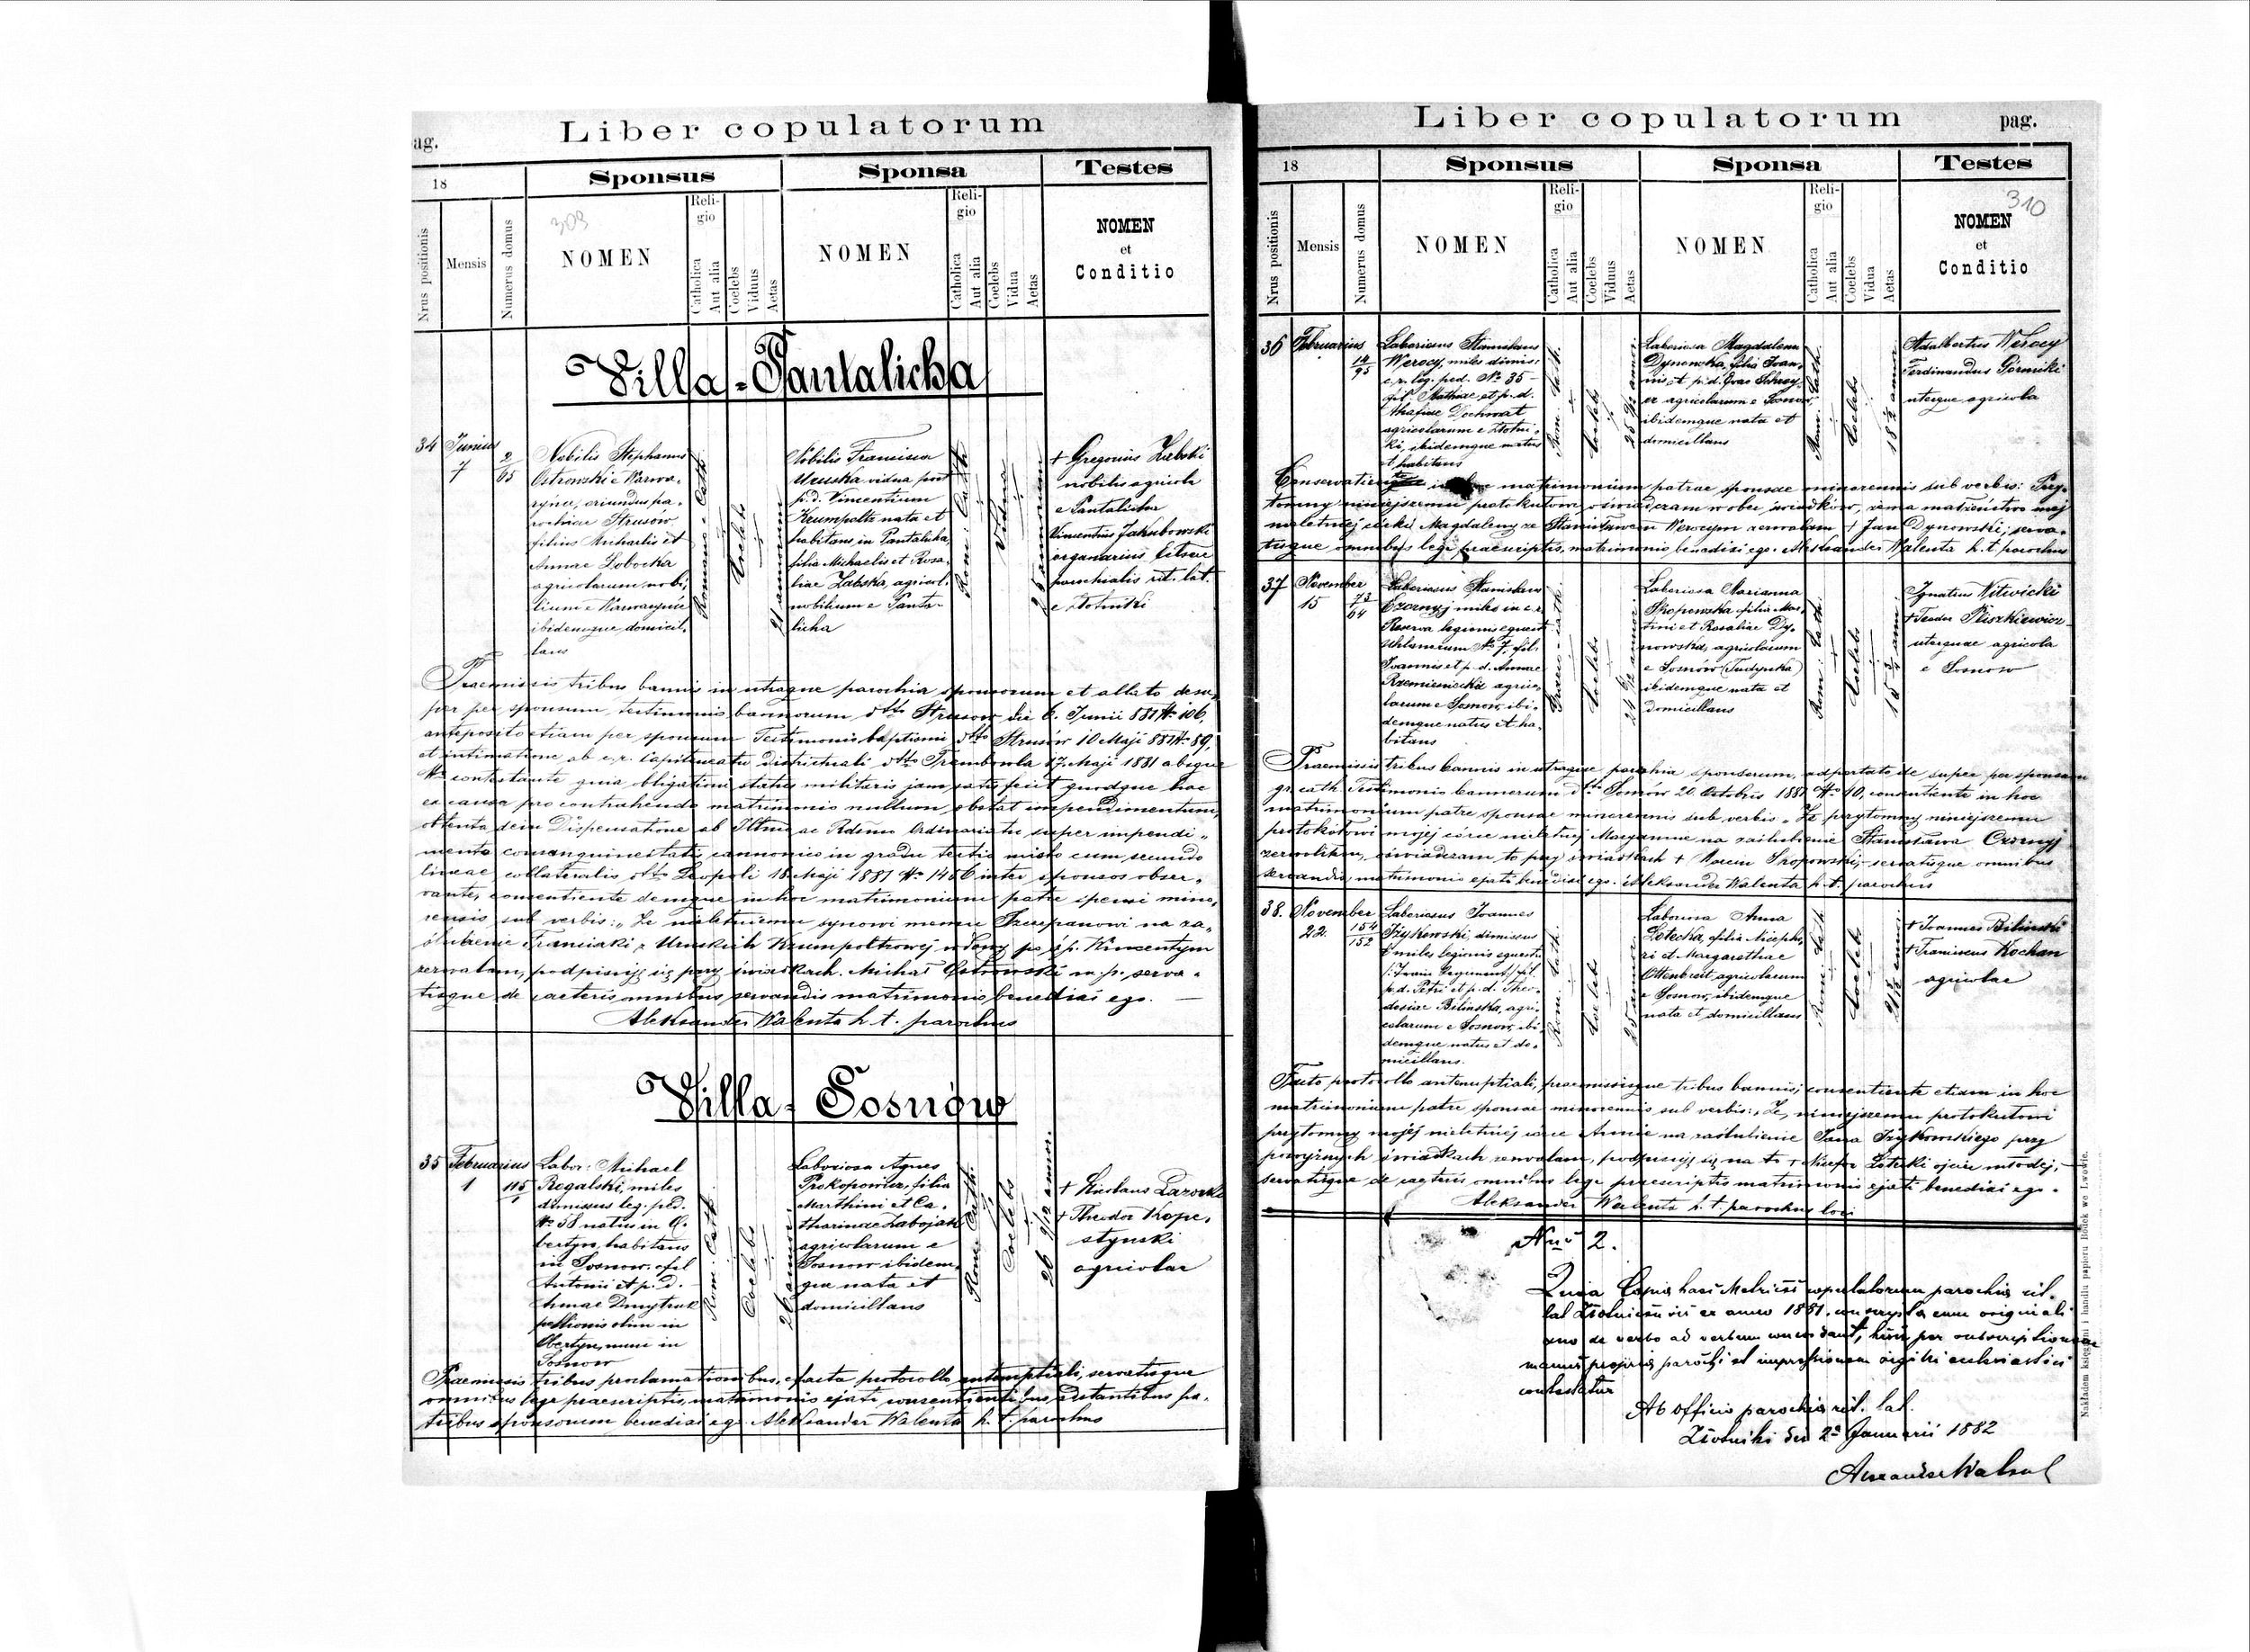 ag.
Liber copulatorum
18
Sponsus
Sponsa
Testes
Nrus positionis
Mensis
Numerus domus
309
NOMEN
Reli-
gio
Catholica
Aut alia
Coelebs
Viduus
Aetas
NOMEN
Reli-
gio
Catholica
Aut alia
Coelebs
Vidua
Aetas
NOMEN
et
Conditio
Villa - Pantalicha
34 Junius
7
2
65
Nobilis Stephanus
Ostrowski e Warwa-
ryńce, oriundus pa-
rochiae Strusów
filius Michaelis et
Annae Łobocka
agricolarum nobi-
lium e Warwaryńce
ibidemque domicil-
lans
Romano-Cath.
Coelebs
21 annorum
Nobilis Francisca
Uruska vidua post
p.d. Vincentium
Krumpoltz nata et
habitans in Pantalicha
filia Michaelis et Rosa-
liae Zabska, agricol.
nobilium e Panta-
licha
Rom: Cath.
Vidua
annorum
+ Gregorius Zabski
nobilis agricola
e Pantalicha
Vincentius Jakubowski
organarius Eclesiae
parochialis rit. lat.
e Złotniki
Praemissis tribus bannis in utraque parochia sponsorum et allato desu-
per per sponsum testimonio bannorum dtto Strusow die 6. Junii 881 № 106,
anteposito etiam per sponsum Testimonio baptismi dtto Strusów 10 Maji 881 № 89,
et intimatione ab c.r. Capitaneatu districtuali dtto Trembowla 17. Maji 1881 absque
№ contestante quia obligationi status militaris jam satis fecit quodque hac
ex causa pro contrahendo matrimonio nullum obstat impendimentum,
obtenta dein Dispensatione ab Illmo ac Rdsmo Ordinariatu super impendi-
mento consanguineitatis cannonico in gradu tertio misto cum secundo
lineae collateralis dtto Leopoli 18 Maji 1881 № 1456 inter sponsos obser-
vante, consentiente demque in hoc matrimonium patre sponsi mino-
rensis sub verbis: „Ze małetniemu synowi memu Szczepanowi na za-
ślubienie Franciszki z Uruskich Krumpoltzowej wdowy po ś.p. Wincentym
zezwalam, podpisuję się przy świadkach. Michał Ostrowski m.p. serva-
tisque de caeteris omnibus servandis matrimonio benedixi ego. —
Aleksander Walenta h. t. parochus
Villa - Sosnów
35 Februarius
1
115
1
Labor: Michael
Rogalski, miles
dimissus leg. ped.
№ 58 natus in O-
bertyn, habitans
in Sosnow. fil
Antonii et p.d.
Annae Dmytruk
pellionis olim in
Obertyn, nunc in
Sosnow
Rom: Cath
Coelebs
26 annor.
Laboriosa Agnes
Prokopowicz, filia
Marthini et Ca-
tharinae Zabojak
agricolarum e
Sosnow ibidem-
que nata et
domicillans
Rom: Cath.
Coelebs
26 9/12 annor.
+ Nicolaus Łazorek
+ Theodor Kope-
stynski
agricolae
Praemissis tribus proclamationibus, facto protocollo antenuptiali, servatisque
omnibus lege praescriptis, matrimonio ejati consentientibus adstantibus pa-
tribus sponsorum benedixi ego Aleksander Walenta h. t. parochus
Liber copulatorum
pag.
18
Sponsus
Sponsa
Testes
Nrus positionis
Mensis
Numerus domus
NOMEN
Reli-
gio
Catholica
Aut alia
Coelebs
Viduus
Aetas
NOMEN
Reli-
gio
Catholica
Aut alia
Coelebs
Vidua
Aetas
310
NOMEN
et
Conditio
36 Februarius
14
95
Laboriosus Stanislaus
Werocy, miles dimis:
c.r. leg. ped. № 35 -
fil. Mathiae et p.d.
Dochwat
agricolarum e Złotni-
ki, ibidemque natus
et habitans
Rom. Cath.
Coelebs
Laboriosa Magdalena
Dynowska, filia Joan-
nis et p.d. Evae Schrey-
er agricolarum e Sosnow
ibidemque nata et
domicillans
Rom: Cath:
Coelebs
Adalbertus Werocy
Ferdinandus Górnicki
uterque agricola
matrimonium patrae sponsae minorennis sub verbis: Przy-
tomny niniejszemu protokułowi oświadczam w obec świadków, że na małżeństwo mej
małetniej córki Magdaleny ze Stanisławem Werocym zezwalam + Jan Dynowski; serva-
tisque omnibus lege praescriptis, matrimonio benedixi ego Aleksander Walenta h. t. parochus
37 November
15
73
64
Laboriosus Stanislaus
Czornyj miles in c.r.
Reserva legionis equest.
Uhlanorum № 7, fil.
Joannis et p.d. Annae
agrico-
larum e Sosnow, ibi-
demque natus et ha-
bitans
Graeco-cath:
Coelebs
Laboriosa Marianna
Skopowska filia Mar-
tini et Rosaliae Dy-
nowska, agricolarum
e Sosnów (Tudynka)
ibidemque nata et
domicillans
Rom: Cath:
Coelebs
Ignatius Witwicki
+ Teodor Pliszkiewicz
uterquae agricola
e Sosnow
Praemissis tribus bannis in utraque parochia sponsorum, adportato de super per sponsum
gr. cath. Testimonio bannorum dtto Sosnów 20 Octobris 1881 № 40, consentiente in hoc
matrimonium patre sponsae minorennis sub verbis „Ze przytomny niniejszemu
protokołowi mojej córce nieletniej Maryannie na zaślubienie Stanisława Czornyj
zezwoliłem, oświadczam to przy świadkach + Marcin Skopowski, servatisque omnibus
servandis, matrimonio ejati benedixi ego. Aleksander Walenta h. t. parochus
38. November
22.
154
152
Laboriosus Joannes
Iżykowski, dimissus
miles legionis equestr.
fil.
p.d. Petri et p.d. Theo-
dosiae Bilinska, agri-
colarum e Sosnow, ibi-
demque natus et do-
micillans.
Rom: Cath:
Coeleb
25 annor.
Laboriosa Anna
Letecka, filia Nicepho-
ri et Margarethae
Ottenbreit agricolarum
e Sosnow, ibidemque
nata et domicillans
Rom: Cath
Coeleb
+ Joannes Bilinski
+ Franciscus Kochan
agricolae
Facto protocollo antenuptiali, praemissisque tribus bannis, consentiente etiam in hoc
matrimonium patre sponsae minorennis sub verbis: „Ze, niniejszemu protokułowi
przytomny mojej nieletniej córce Annie na zaślubienie Jana Iżykowskiego przy
powyższych świadkach zezwalam, podpisuję się na to + Nicefor Letecki ojciec młodej, —
servatisque de caeteris omnibus lege praescriptis matrimonio ejati benedixi ego.
Aleksander Walenta h. t. parochus loci
Nus 2.
Quia Copia haec Metrices copulatorum parochiae rit.
lat. Złotnicensis ex anno 1881. conscripta cum originali
uno de verbo ad verbum concordant, hisce per subscriptionem
manus propriae parochi et impressionem sigilli ecclesiastici
contestatur
Ab officio parochiae rit. lat.
Złotniki die 2a Januarii 1882
Alexander Walenta
Nakładem księgarni i handlu papieru Bodek we Lwowie.